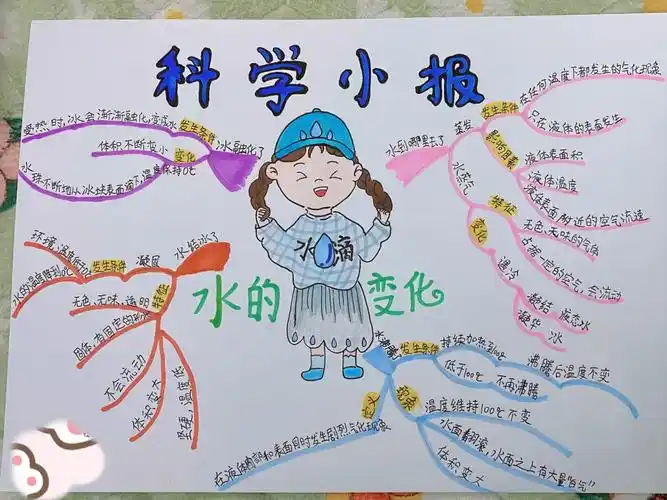 科学小报
受热时,冰会渐渐融化,变成水
发生条件
冰融化了
体积不断变小
变化
水珠不断地从冰块表面滴下
温度保持0℃
水到哪里去了
蒸发
发生条件
在任何温度下都发生的气化现象
只在液体的表面发生
影响因素
液体表面积
液体温度
液体表面附近的空气流速
水蒸气
特征
无色、无味的气体
占据一定的空气,会流动
变化
遇冷
凝结
液态水
凝华
冰
水滴
水的变化
水结冰了
凝固
发生条件
环境温度低
水的温度降到0℃
特征
无色、无味、透明
固体,有固定的形状
不会流动
体积变大
坚硬,易
水沸腾
发生条件
持续加热到100℃
沸腾后温度不变
低于100℃
不再沸腾
定义
在液体内部和表面同时发生剧烈气化现象
现象
温度维持100℃不变
水面翻滚,水面之上有大量"白气"
体积变大